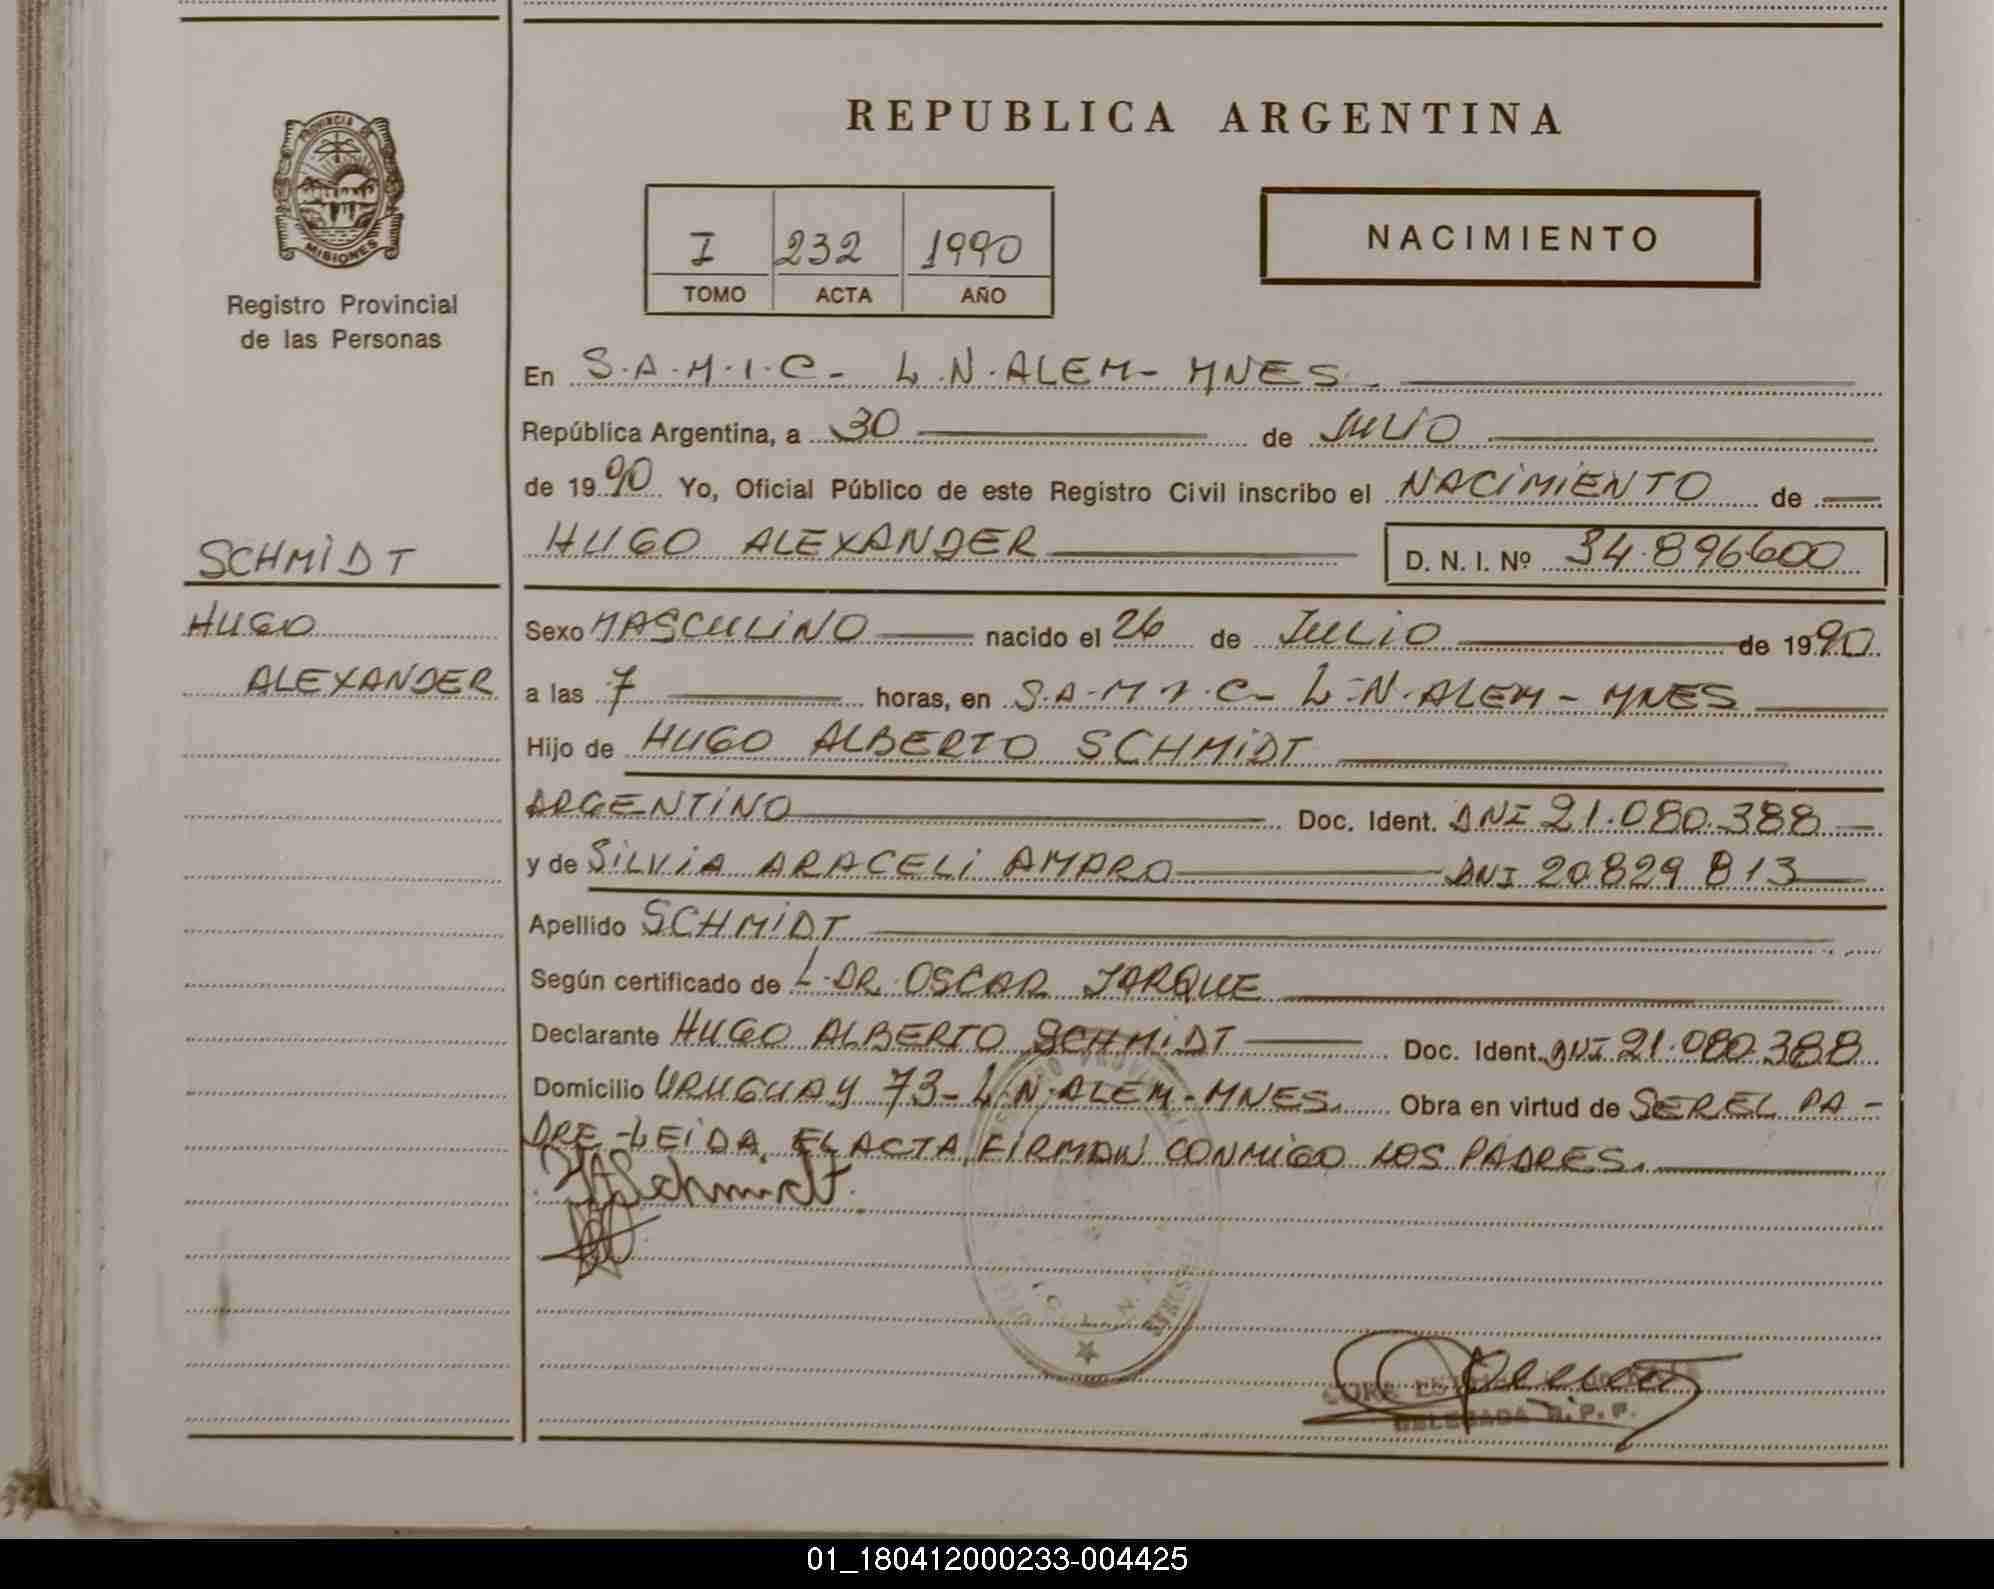 REPUBLICA ARGENTINA
PROVINCIA DE
MISIONES
Registro Provincial
de las Personas
I 232 1990
TOMO ACTA AÑO
NACIMIENTO
En S.A.M.I.C- L.N.ALEM- MNES.
República Argentina, a 30 de JULIO
de 1990 Yo, Oficial Público de este Registro Civil inscribo el NACIMIENTO de
HUGO ALEXANDER D. N. I. Nº 34.896600
SCHMIDT
HUGO
ALEXANDER
Sexo MASCULINO nacido el 26 de JULIO de 1990
a las 7 horas, en S.A.M.I.C- L.N.ALEM- MNES
Hijo de HUGO ALBERTO SCHMIDT
ARGENTINO Doc. Ident. DNI 21.080.388
y de SILVIA ARACELI AMARO DNI 20829813
Apellido SCHMIDT
Según certificado de L.DR.OSCAR JARQUE
Declarante HUGO ALBERTO SCHMIDT Doc. Ident. DNI 21.080.388
Domicilio URUGUAY 73- L.N.ALEM-MNES. Obra en virtud de SER EL PA-
DRE-LEIDA EL ACTA, FIRMAN CONMIGO LOS PADRES.
HASchmidt
DELEGADA R.P.P.
01_180412000233-004425